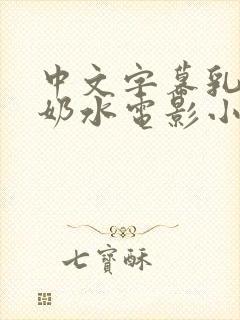 中文字幕乳
奶水电影小
七寶酥